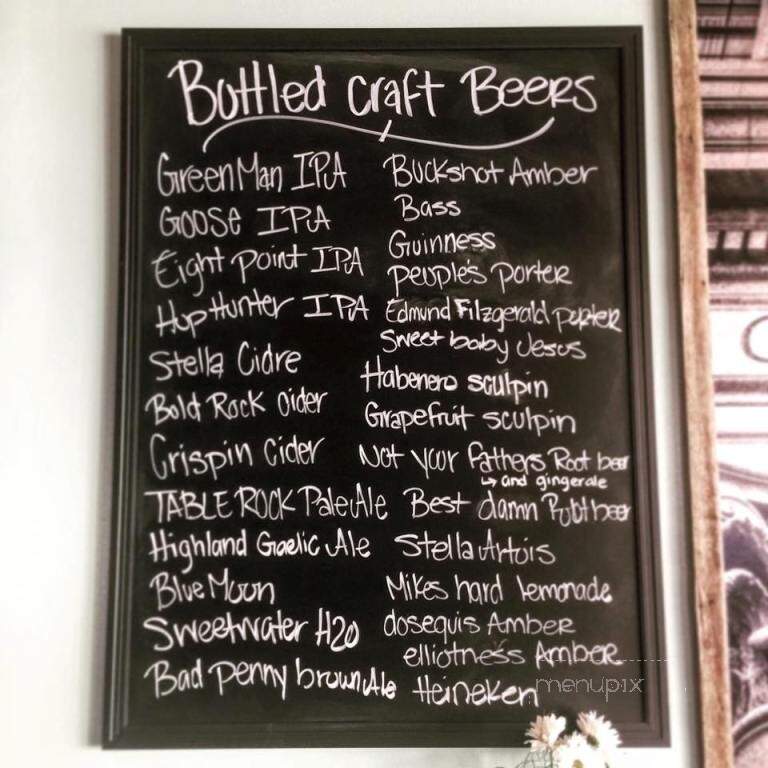 Bottled craft Beers
GreenMan IPA
Goose IPA
Eight point IPA
Hop Hunter IPA
Stella Cidre
Bold Rock cider
Crispin Cider
TABLE ROCK Pale Ale
Highland Gaelic Ale
Blue Moon
Sweetwater H2O
Bad penny brown Ale
Buckshot Amber
Bass
Guinness
people's porter
Edmund Filzgerald porter
Sweet baby Jesus
Habenero sculpin
Grapefruit sculpin
Not your fathers Root beer
↳ and gingerale
Best damn Root beer
Stella Artois
Mikes hard lemonade
dosequis Amber
elliotness Amber
Heineken
menupix